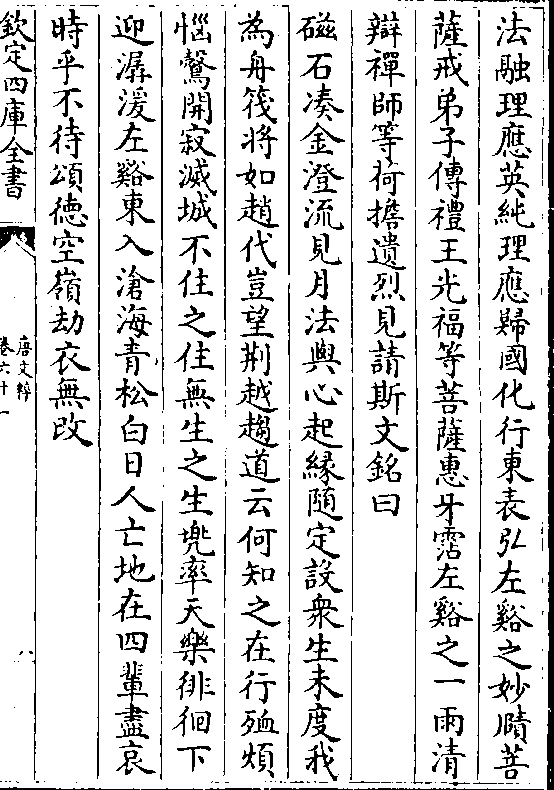 法融理應英純理應歸國化行東表弘左谿之妙賾菩
薩戒弟子傳禮王光福等菩薩惠牙霑左谿之一雨清
辯禪師等荷擔遺烈見請斯文銘曰
磁石湊金澄流見月法與心起緣隨定設衆生未度我
為舟筏將如趙代豈望荆越趨道云何知之在行殛煩
惱鷙開寂滅城不住之住無生之生兠率天樂徘徊下
迎潺湲左谿東入滄海青松白日人亡地在四輩盡哀
時乎不待頌德空嶺劫衣無改
欽定四庫全書
唐文粹
卷六十一
八